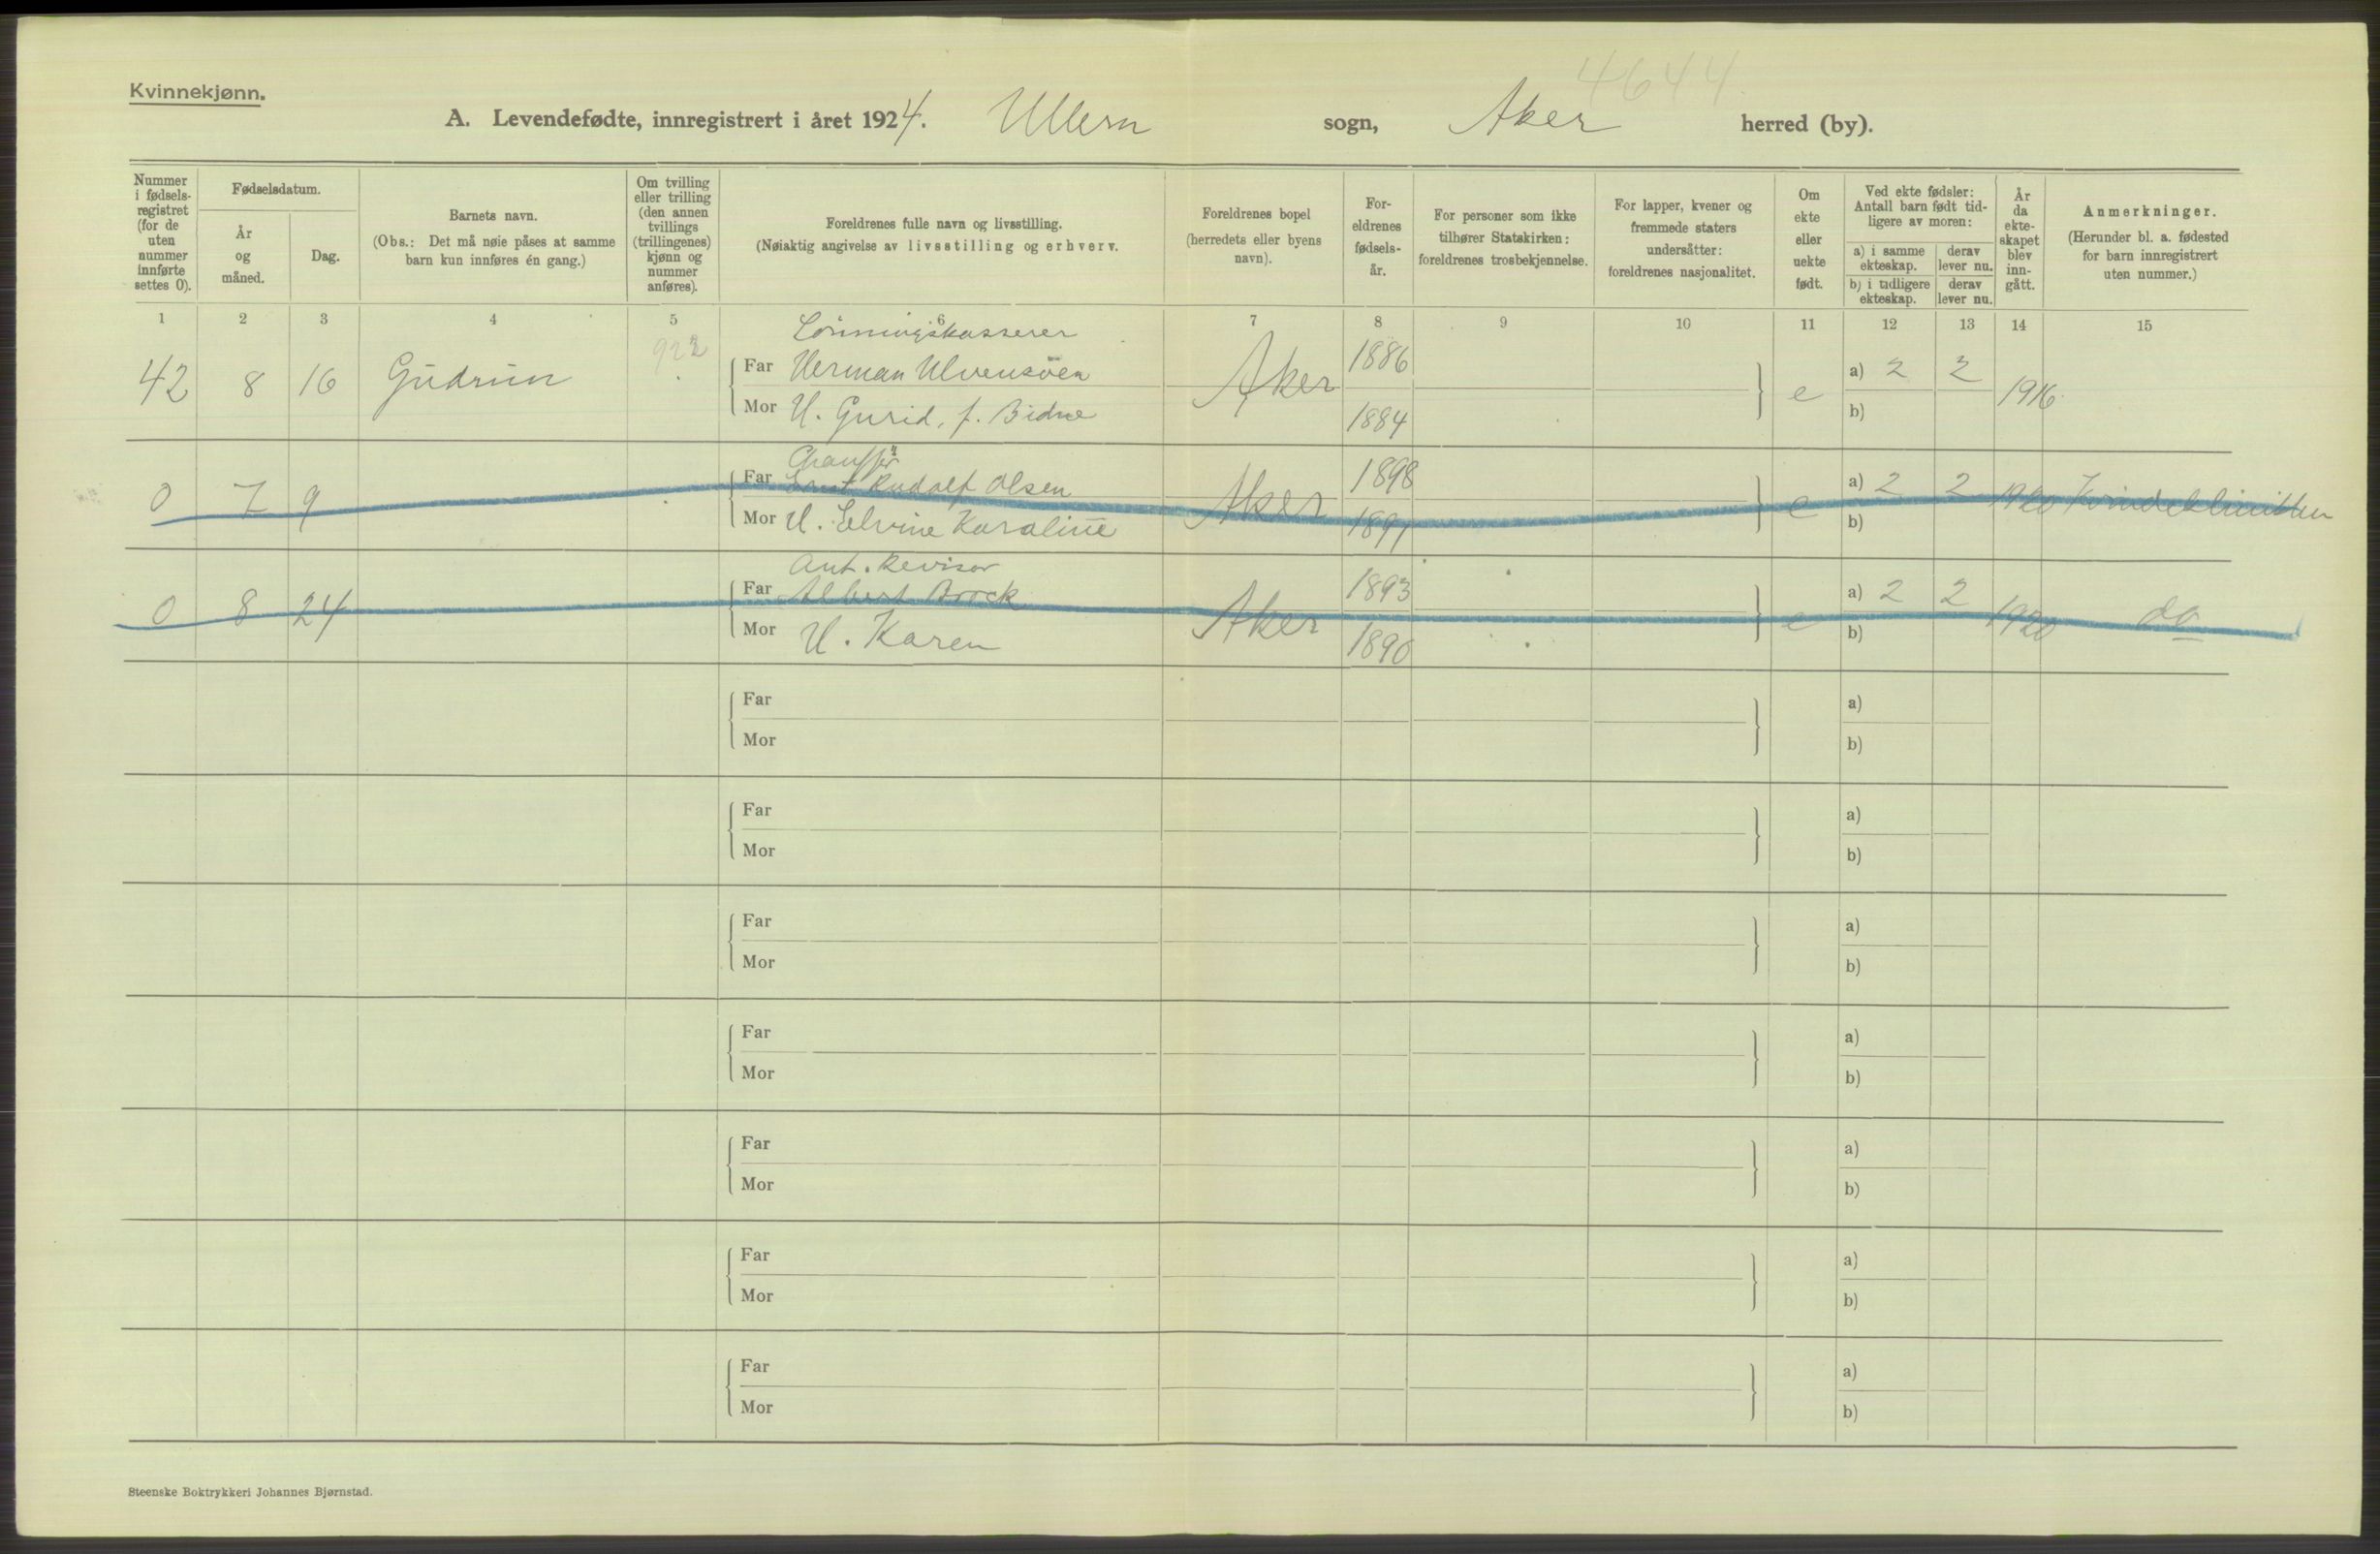 4644
Kvinnekjønn.
A. Levendefødte, innregistrert i året 1924. Ullern sogn, Aker herred (by).
Nummer
i fødsels-
registret
(for de
uten
nummer
innførte
settes 0).
Fødselsdatum.
År
og
måned.
Dag.
Barnets navn.
(Obs.: Det må nøie påses at samme
barn kun innføres én gang.)
Om tvilling
eller trilling
(den annen
tvillings
(trillingenes)
kjønn og
nummer
anføres).
Foreldrenes fulle navn og livsstilling.
(Nøiaktig angivelse av livsstilling og erhverv.
Foreldrenes bopel
(herredets eller byens
navn).
For-
eldrenes
fødsels-
år.
For personer som ikke
tilhører Statskirken:
foreldrenes trosbekjennelse.
For lapper, kvener og
fremmede staters
undersåtter:
foreldrenes nasjonalitet.
Om
ekte
eller
uekte
født.
Ved ekte fødsler:
Antall barn født tid-
ligere av moren:
a) i samme
ekteskap.
derav
lever nu.
b) i tidligere
ekteskap.
derav
lever nu.
År
da
ekte-
skapet
blev
inn-
gått.
Anmerkninger.
(Herunder bl. a. fødested
for barn innregistrert
uten nummer.)
1 2 3 4 5 6 7 8 9 10 11 12 13 14 15
Lønningskasserer
42 8 16 Gudrun 922 Far Herman Ulvensøen Aker 1886 e a) 2 2 1916
Mor H. Gurid, f. Bidne 1884 b)
Chauffør
0 7 9 Far Ernst Rudolf Olsen Aker 1898 e a) 2 2 1920 Kvindeklinikken
Mor H. Elvine Karoline 1891 b)
Aut. Revisor
0 8 24 Far Albert Brock Aker 1893 e a) 2 2 1920 do
Mor H. Karen 1890 b)
Far a)
Mor b)
Far a)
Mor b)
Far a)
Mor b)
Far a)
Mor b)
Far a)
Mor b)
Far a)
Mor b)
Far a)
Mor b)
Steenske Boktrykkeri Johannes Bjørnstad.